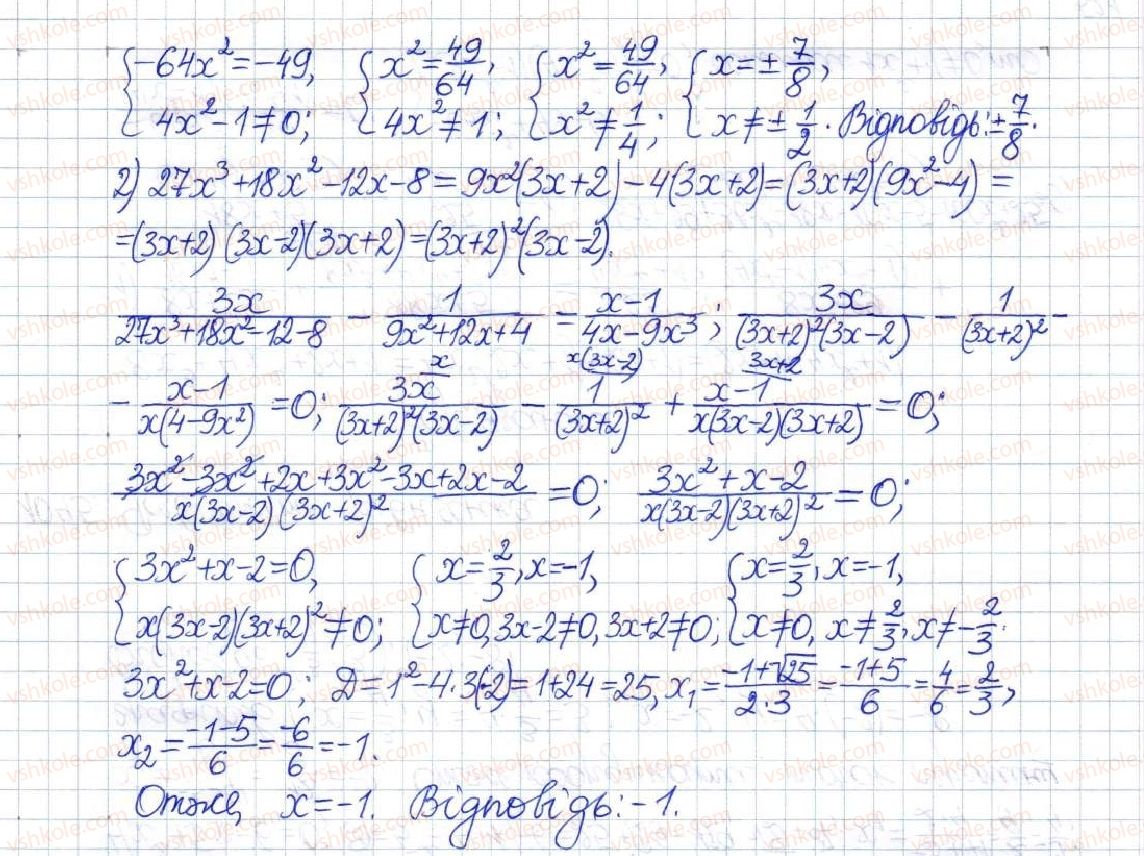 {-64x²=-49, 4x²-1≠0; {x²=49/64, 4x²≠1; {x²=49/64, x²≠1/4; {x=±7/8, x≠±1/2. Відповідь:±7/8.
2) 27x³+18x²-12x-8=9x²(3x+2)-4(3x+2)=(3x+2)(9x²-4)=
=(3x+2)(3x-2)(3x+2)=(3x+2)²(3x-2).
3x/(27x³+18x²-12-8) - 1/(9x²+12x+4) = (x-1)/(4x-9x³); 3x/((3x+2)²(3x-2)) - 1/(3x+2)² -
- (x-1)/(x(4-9x²)) =0; 3x/((3x+2)²(3x-2)) (x) - 1/(3x+2)² (x(3x-2)) + (x-1)/(x(3x-2)(3x+2)) (3x+2) =0;
(3x²-3x²+2x+3x²-3x+2x-2)/(x(3x-2)(3x+2)²) =0; (3x²+x-2)/(x(3x-2)(3x+2)²) =0;
{3x²+x-2=0, x(3x-2)(3x+2)²≠0; {x=2/3, x=-1, x≠0, 3x-2≠0, 3x+2≠0; {x=2/3, x=-1, x≠0, x≠2/3, x≠-2/3.
3x²+x-2=0; D=1²-4·3(-2)=1+24=25, x₁=(-1+√25)/(2·3)=(-1+5)/6=4/6=2/3,
x₂=(-1-5)/6=-6/6=-1.
Отже, x=-1. Відповідь:-1.